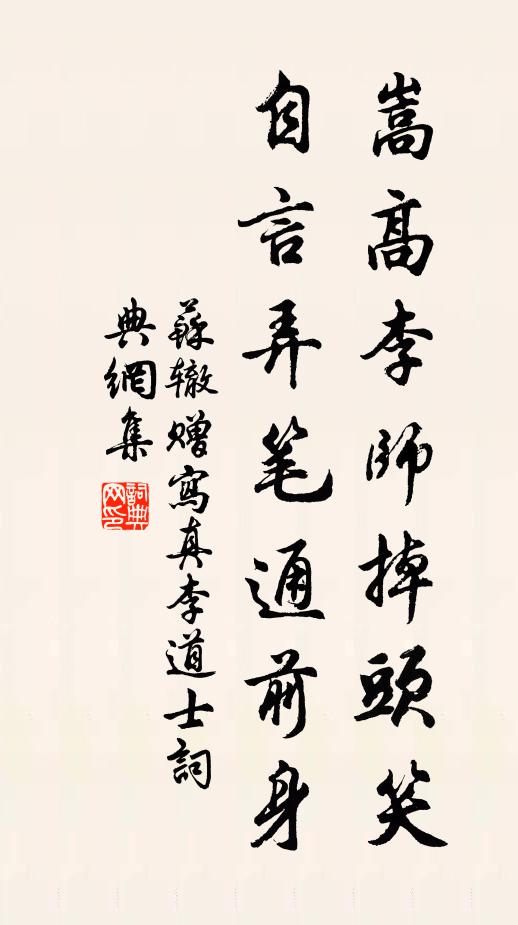 嵩高李師掉頭笑
自言弄笔通前身
蘇辙贈寫真李道士詞
典網集
詞典网印